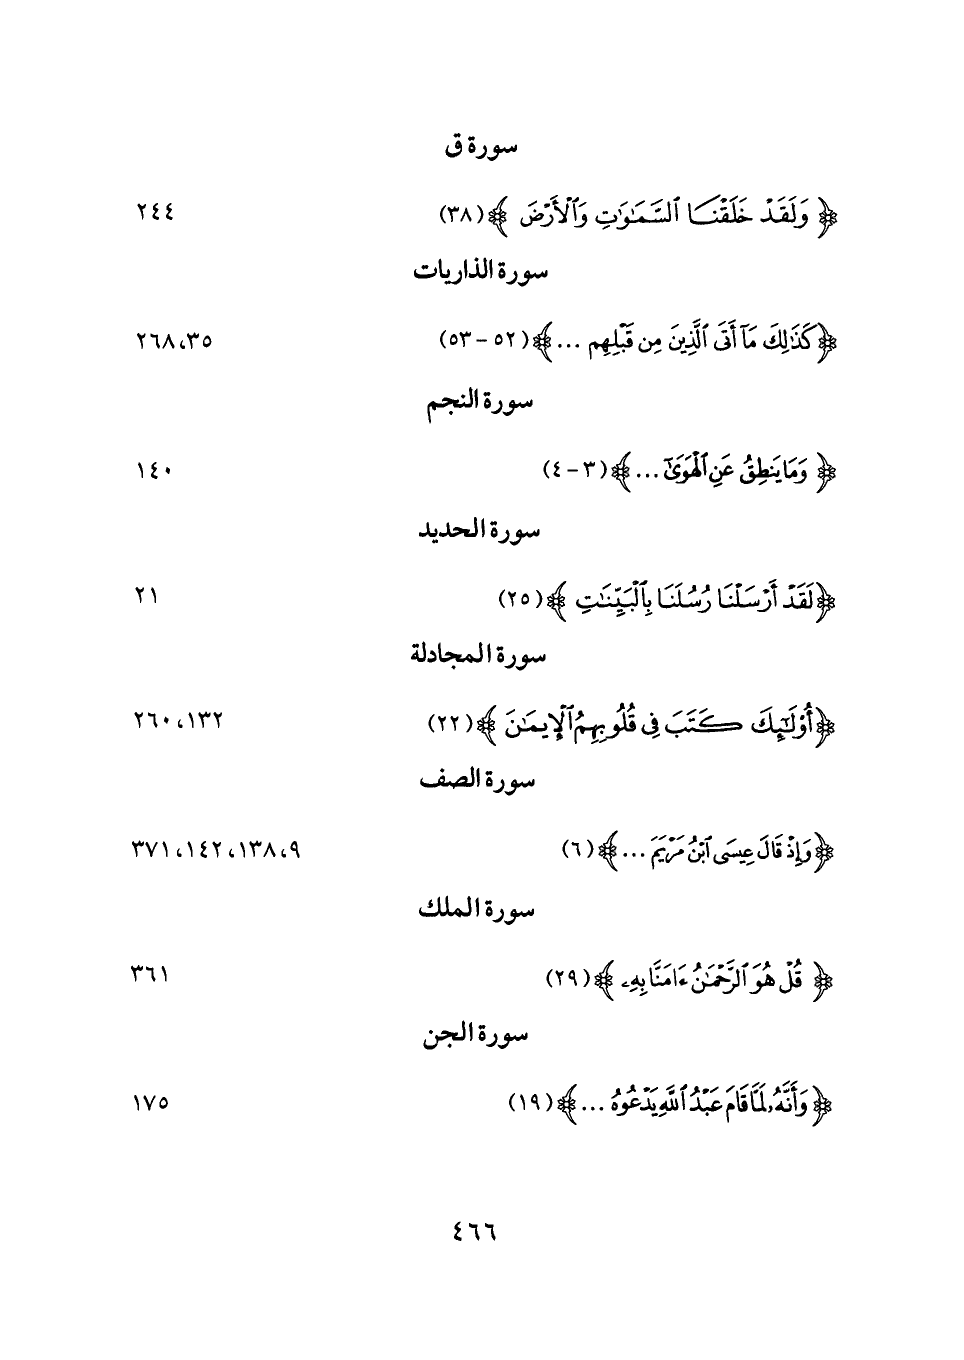 سورة ق
﴿ وَلَقَدْ خَلَقْنَا ٱلسَّمَٰوَٰتِ وَٱلْأَرْضَ ﴾ (٣٨) ٢٤٤
سورة الذاريات
﴿كَذَٰلِكَ مَآ أَتَى ٱلَّذِينَ مِن قَبْلِهِم ...﴾ (٥٢ - ٥٣) ٣٥، ٢٦٨
سورة النجم
﴿ وَمَا يَنطِقُ عَنِ ٱلْهَوَىٰٓ ...﴾ (٣ - ٤) ١٤٠
سورة الحديد
﴿لَقَدْ أَرْسَلْنَا رُسُلَنَا بِٱلْبَيِّنَٰتِ ﴾ (٢٥) ٢١
سورة المجادلة
﴿أُوْلَٰٓئِكَ كَتَبَ فِى قُلُوبِهِمُ ٱلْإِيمَٰنَ ﴾ (٢٢) ١٣٢، ٢٦٠
سورة الصف
﴿وَإِذْ قَالَ عِيسَى ٱبْنُ مَرْيَمَ ...﴾ (٦) ٩، ١٣٨، ١٤٢، ٣٧١
سورة الملك
﴿ قُلْ هُوَ ٱلرَّحْمَٰنُ ءَامَنَّا بِهِۦ ﴾ (٢٩) ٣٦١
سورة الجن
﴿وَأَنَّهُۥ لَمَّا قَامَ عَبْدُ ٱللَّهِ يَدْعُوهُ ...﴾ (١٩) ١٧٥
٤٦٦